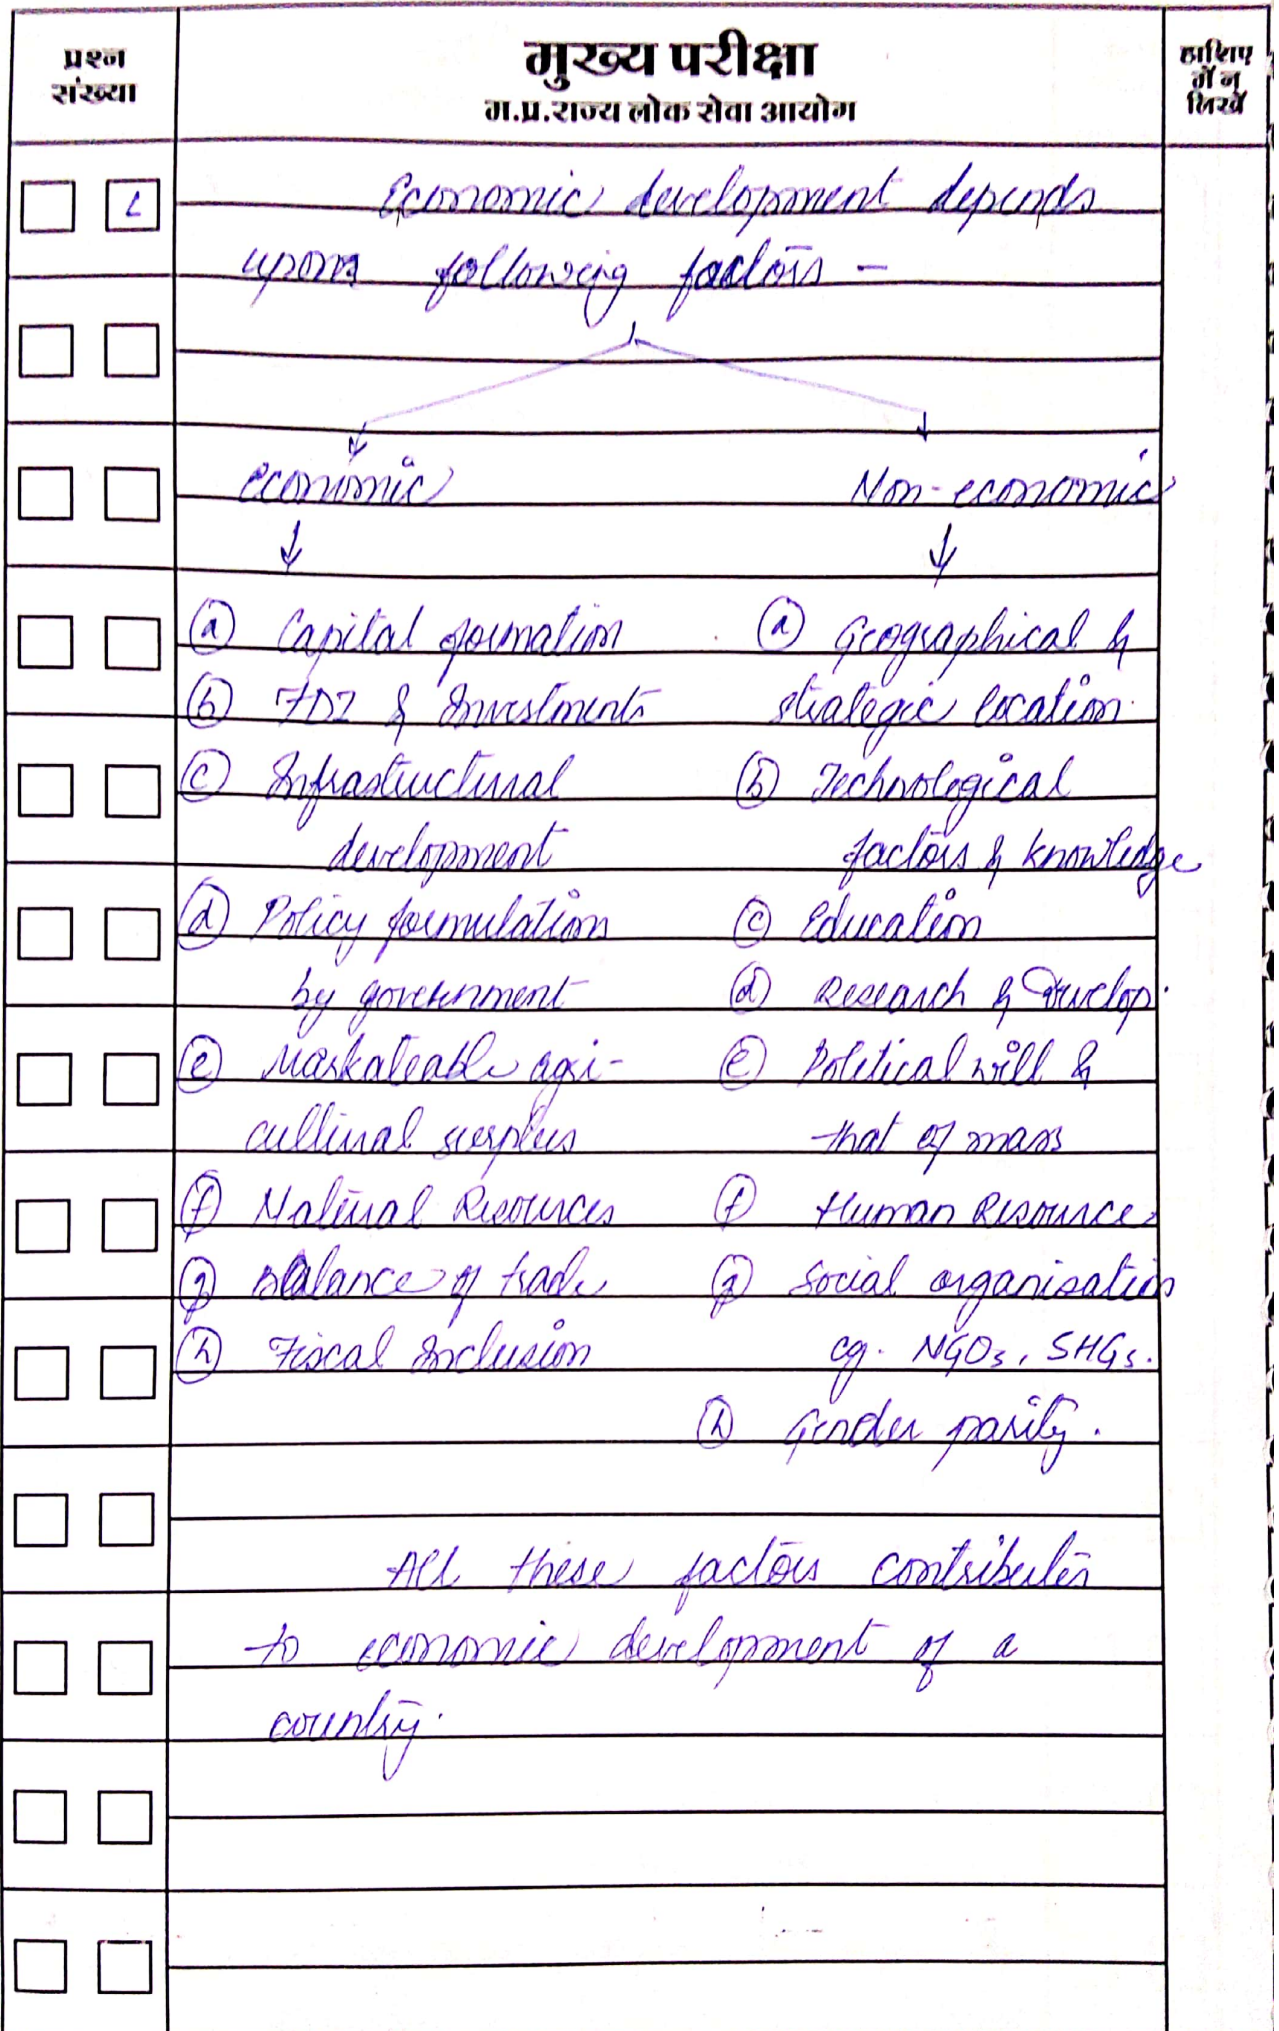 प्रश्न
संख्या
मुख्य परीक्षा
म.प्र.राज्य लोक सेवा आयोग
हाशिए
में न
लिखें
L
Economic development depends
upon following factors -
economic
Non-economic
(a) Capital formation
(b) FDI & Investments
(c) Infrastructural
development
(d) Policy formulation
by government
(e) Markateable agri-
cultural surplus
(f) Natural Resources
(g) Balance of trade
(h) Fiscal Inclusion
(a) Geographical &
strategic location.
(b) Technological
factors & knowledge
(c) Education
(d) Research & Develop.
(e) Political will &
that of mass
(f) Human Resource
(g) Social organisation
eg. NGOs, SHGs.
(h) Gender parity.
All these factors contributes
to economic development of a
country.